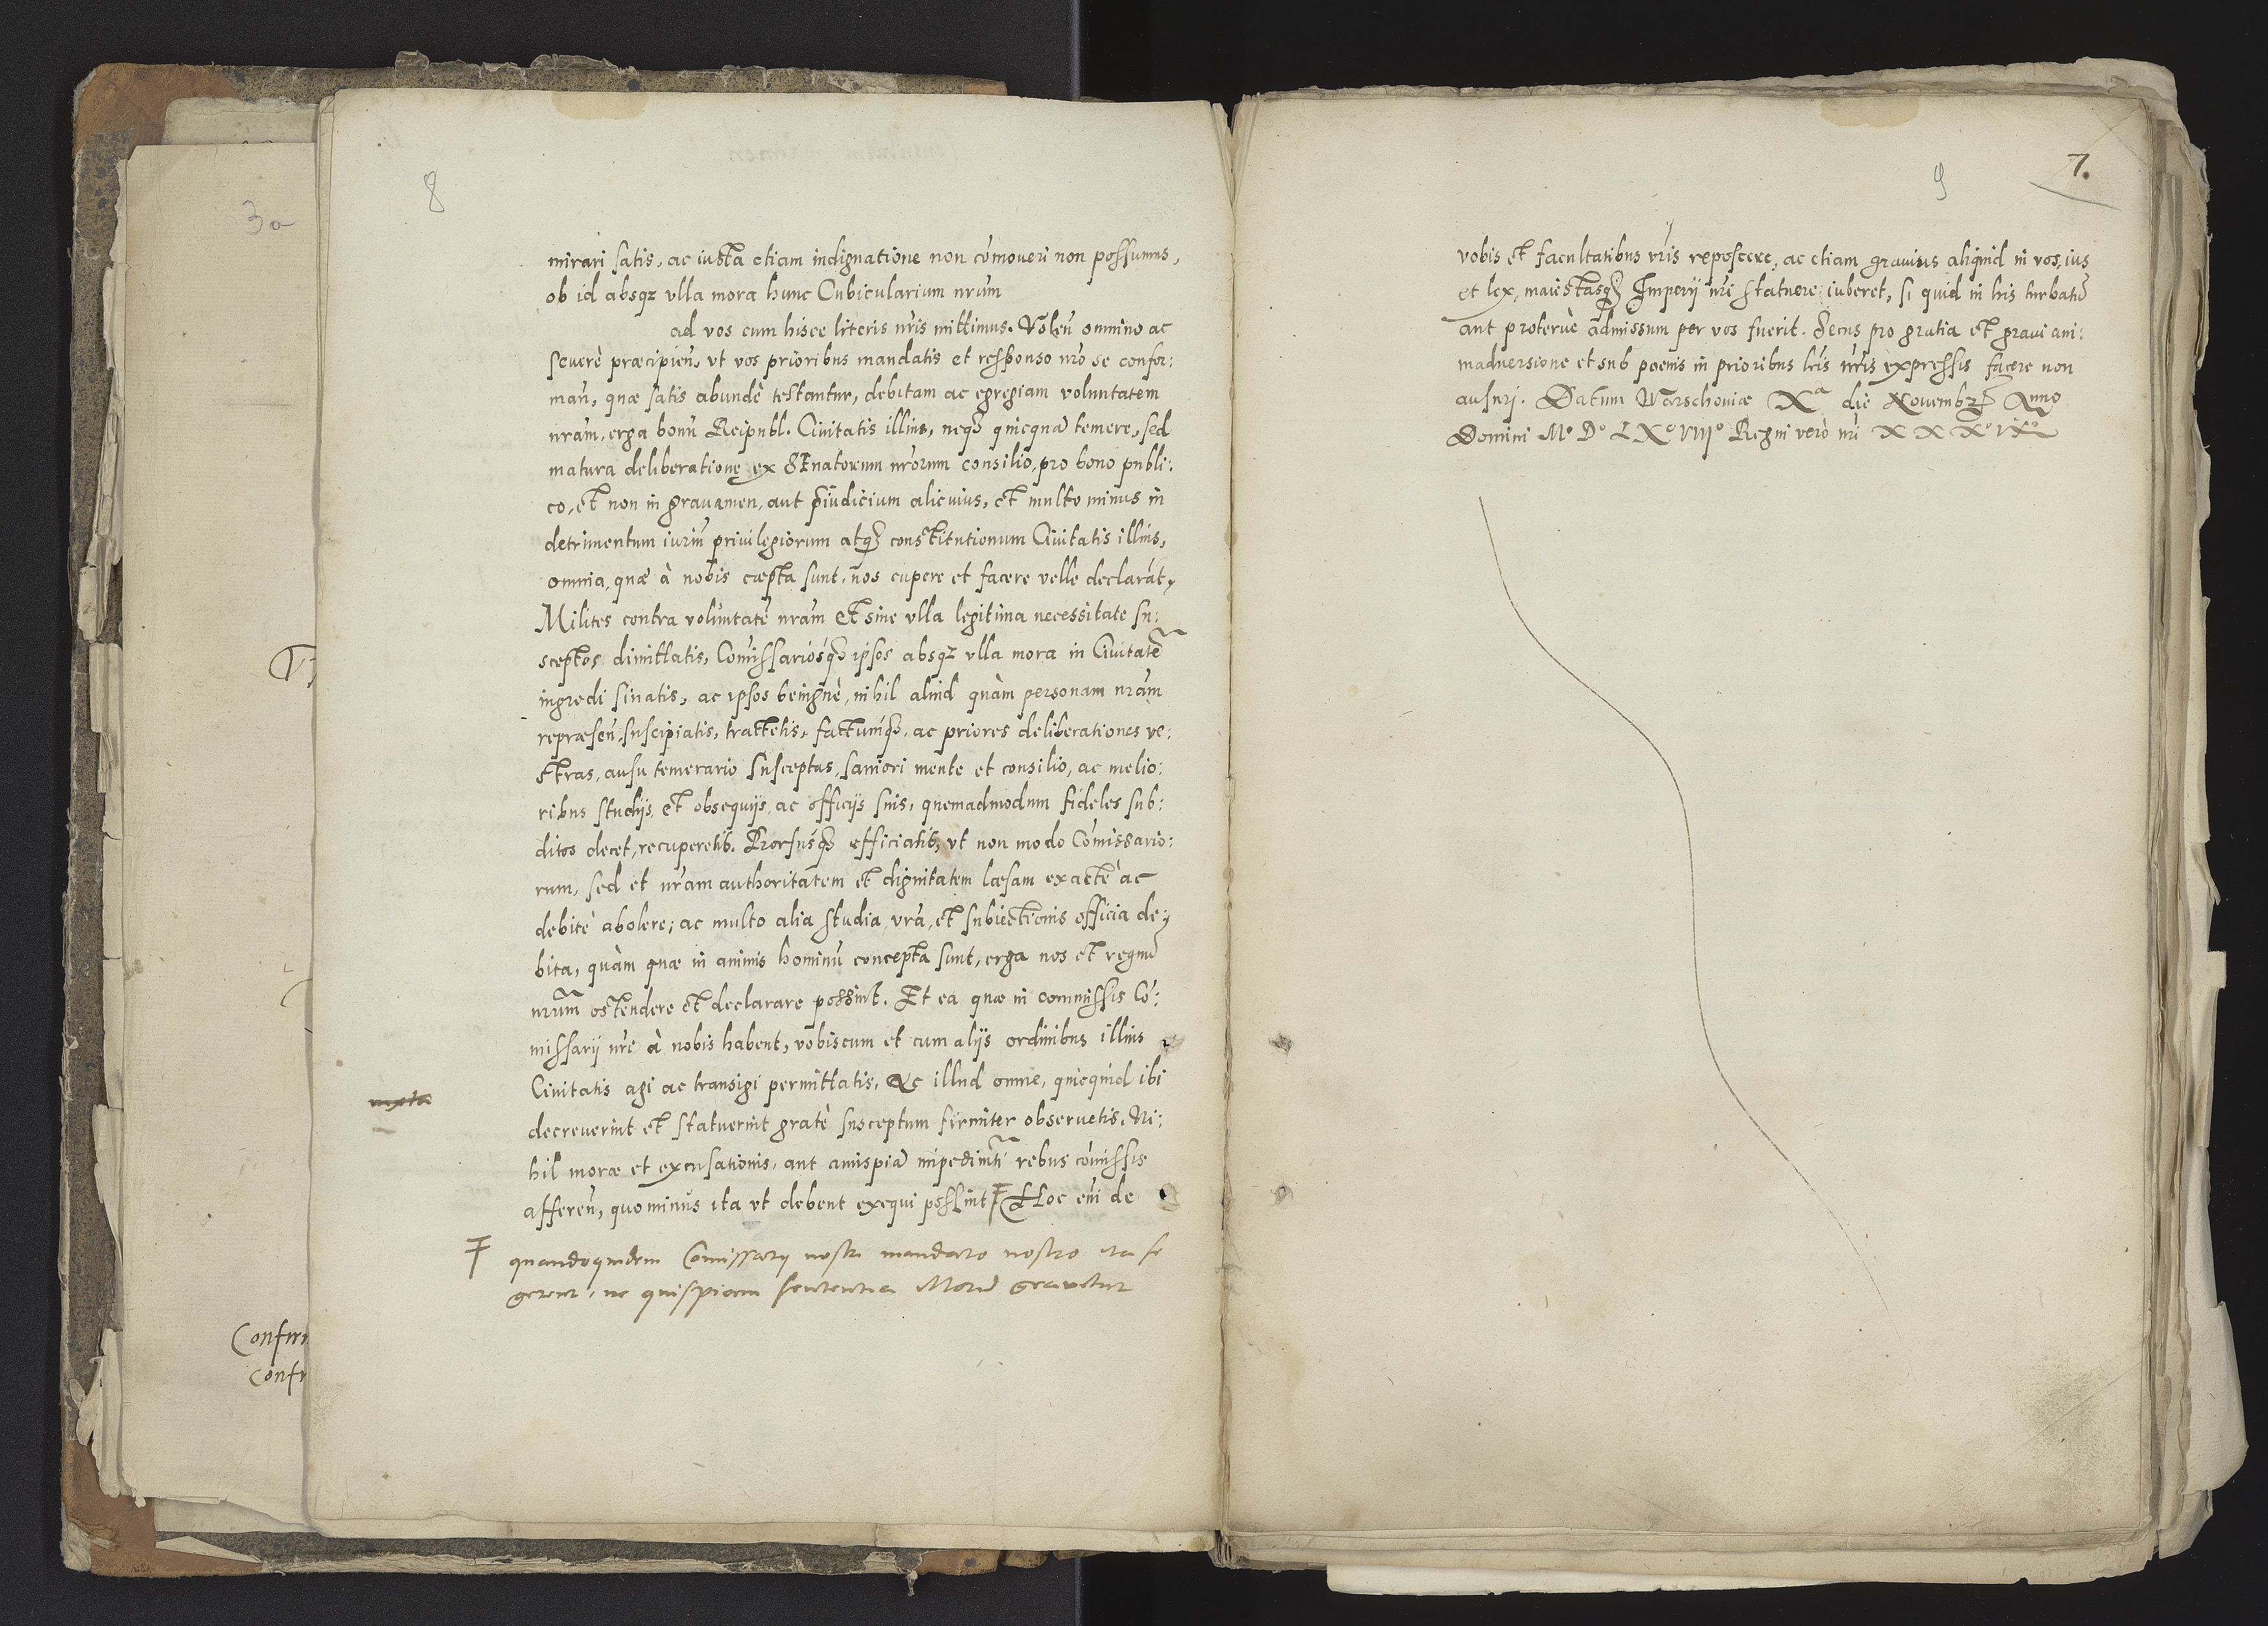 3a
Confir
Confi
8
mirari satis, ac iusta etiam indignatione non cōmoveri non possumus,
ob id absqꝫ vlla mora hunc Cubicularium nr̄um
ad vos cum hisce literis nr̄is mittimus. Volen̄ omnino ac
severè præcipien̄, vt vos prioribus mandatis et responso nr̄o se confor:
man̄, quæ satis abundè testantur, debitam ac egregiam voluntatem
nr̄am, erga bonū Reipubl. Civitatis illius, neqꝫ quicquā temere, sed
matura deliberatione ex SEnatorum nr̄orum consilio, pro bono publi:
co, et non in gravamen, aut p̄iudicium alicuius, et multo minus in
detrimentum iuriū privilegiorum atqꝫ constitutionum Civitatis illius,
omnia, quæ à nobis cæpta sunt, nos cupere et facere velle declarāt,
Milites contra voluntatē nr̄am et sine vlla legitima necessitate su:
sceptos dimittatis, Com̄issariosqꝫ ipsos absqꝫ vlla mora in Civitatē
ingredi sinatis, ac ipsos benignè, nihil aliud quàm personam nr̄am
repræsen̄, suscipiatis, tractetis, factumqꝫ, ac priores deliberationes ve:
stras, ausu temerario susceptas, saniori mente et consilio, ac melio:
ribus studijs et obsequijs, ac officijs suis, quemadmodum fideles sub:
ditos decet, recuperetis. Prorsusqꝫ efficiatis, vt non modo Com̄issario:
rum, sed et nr̄am authoritatem et dignitatem læsam exactè ac
debitè abolere, ac multo alia studia vr̄a, et subiectionis officia de,
bita, quàm quæ in animis hominū concepta sunt, erga nos et regnū
nr̄um ostendere et declarare possint. Et ea quæ in commissis Cō:
missarij nr̄i à nobis habent, vobiscum et cum alijs ordinibus illius
Civitatis agi ac transigi permittatis, Ac illud omne, quicquid ibi
decreverint et statuerint gratè susceptum firmiter observetis. Ni:
hil moræ et excusationis, aut cuiuspiā impedimti rebus com̄issis
afferen̄, quominus ita vt debent exequi possint ‡ Hoc en̄i de
‡ quandoquidem Com̄issarij nostri mandato nostro ita se
gerent, ne quispiam sententia Motū gravetur
9
7.
vobis et facultatibus vr̄is reposcere, ac etiam gravius aliquid in vos, ius
et lex, maiestasqꝫ Imperij nr̄i statuere iuberet, si quid in his turbatū
aut protervè admissum per vos fuerit. Secus pro gratia et gravi ani:
madversione et sub poenis in prioribus lr̄is nr̄is expressis facere non
ausuri. Datum Warschoviæ Xᵃ die Novembꝝ Anno
Domini Mº Dº LXº VIIIº Regni verò nr̄i X X Xº IXº